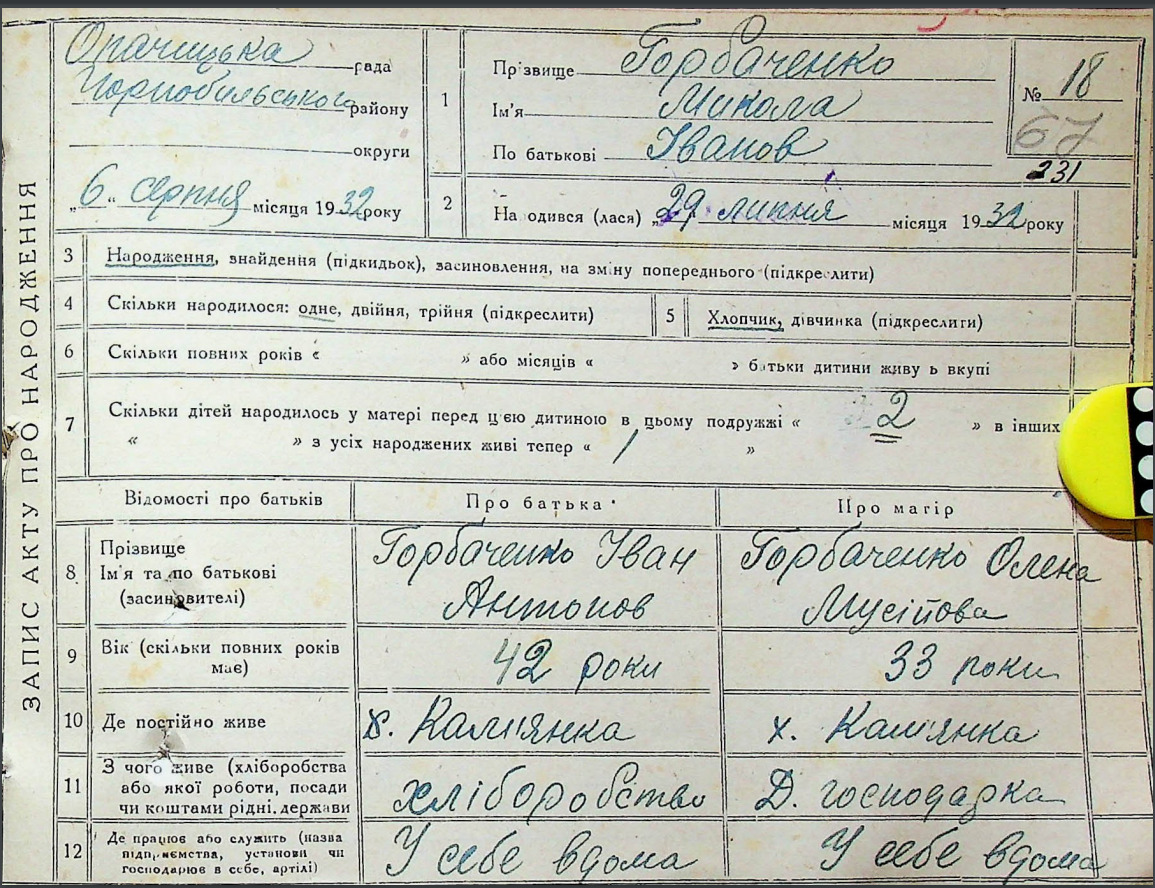 ЗАПИС АКТУ ПРО НАРОДЖЕННЯ
Опачицька рада
Чорнобильського району
округи
„6" серпня місяця 1932 року
1
Прізвище Горбаченко
Ім'я Микола
По батькові Іванов
№ 18
67
231
2
На одився (лася) „29 липня місяця 1932 року
3 Народження, знайдення (підкидьок), засиновлення, на зміну попереднього (підкреслити)
4 Скільки народилося: одне, двійня, трійня (підкреслити)
5 Хлопчик, дівчинка (підкреслити)
6 Скільки повних років « » або місяців « » батьки дитини живу ь вкупі
7 Скільки дітей народилось у матері перед цією дитиною в цьому подружжі « 2 » в інших
« » з усіх народжених живі тепер « 1 »
Відомості про батьків
Про батька
Про матір
8 Прізвище
Ім'я та по батькові
(засиновителі)
Горбаченко Іван
Антонов
Горбаченко Олена
Мусійова
9 Вік (скільки повних років
має)
42 роки
33 роки
10 Де постійно живе
х. Кам'янка
х. Кам'янка
11 З чого живе (хліборобства
або якої роботи, посади
чи коштами рідні, держави
хліборобство
Д. господарка
12 Де працює або служить (назва
підприємства, установи чи
господарює в себе, артілі)
У себе вдома
У себе вдома